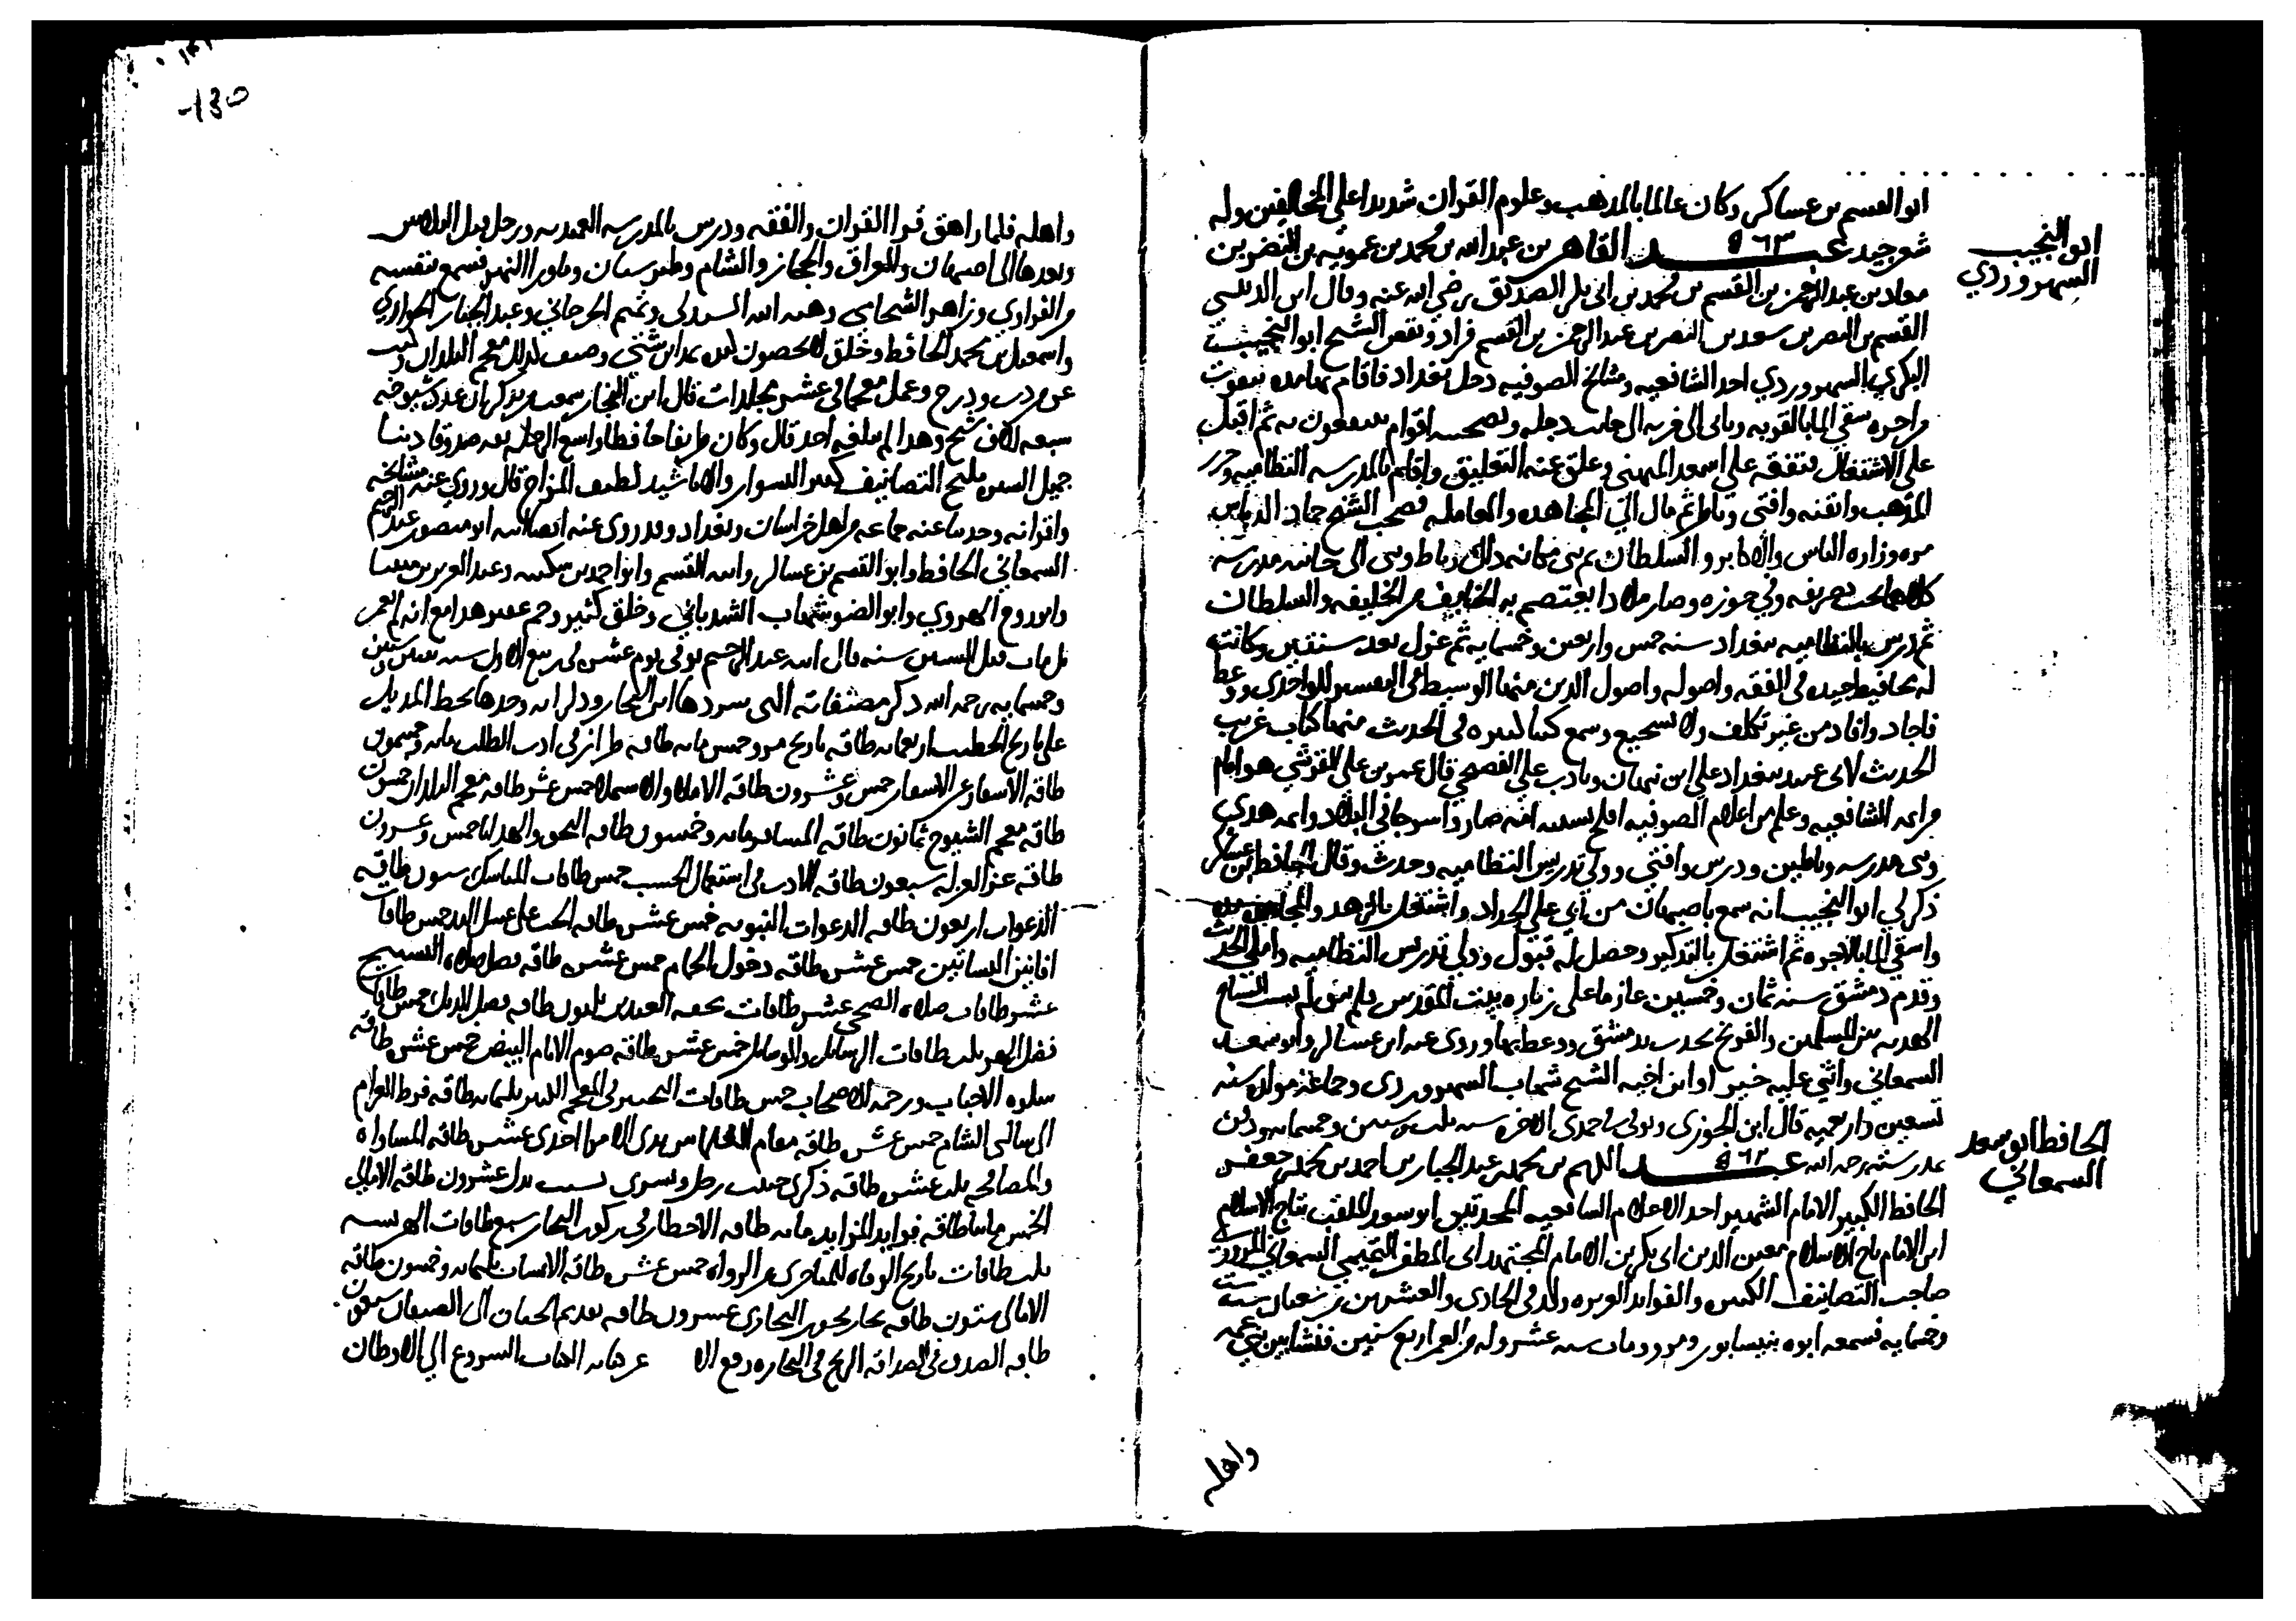 ابو القسم بن عساكر وكان عالما بالمذهب وعلوم القران شديدا على المخالفين وله
شعر جيد عبد القاهر بن عبد الله بن محمد بن عمويه بن النضر بن
٥٦٣
ابو النجيب
السهروردي
معاد بن عبد الرحمن بن القسم بن محمد بن ابى بكر الصديق رضي الله عنه وقال ابن الدبيثي
القسم بن النصر بن سعد بن النصر بن عبد الرحمن بن القسم فزاد ونقص الشيخ ابو النجيب
البكري السهروردي احد الشافعيه ومشايخ الصوفيه دخل بغداد فاقام بها مده يتقوت
من اجره سقي الما بالقربه وياتى الى خربه الى جانب دجله وتصحبه اقوام ينتفعون به ثم اقبل
على الاشتغال بتفقه على اسعد الميهني وعلق عنه التعليق واقام بالمدرسه النظاميه وحرر
المذهب واتقنه وافتى وناظر ثم مال الى المجاهده والمعامله فصحب الشيخ حماد الدباس
مره وزاره الناس والاكابر والسلطان ثم بنى مكانه ذلك رباط وبنى الى جانبه مدرسه
كلاهما تحت تصريفه وفي حوزه وصار ملاذا يعتصم به الخايف من الخليفه والسلطان
ثم درس بالنظاميه ببغداد سنه خمس واربعين وخمسمايه ثم عزل بعد سنتين وكانت
له محافيظ جيده فى الفقه واصوله واصول الدين منها الوسيط فى التفسير للواحدى ووعظ
فاجاد وافاد من غير تكلف ولا تسجيع وسمع كتبا كثيره فى الحديث منها كتاب غريب
الحديث لابى عبيد ببغداد على ابن نبهان وتادب على الفصيحي قال عمر بن على القرشي هو امام
من ايمه الشافعيه وعلم من اعلام الصوفيه افلح بسببه امه صاروا سرجا فى البلاد وايمه هدى
وبنى مدرسه ورباطين ودرس وافتى وولى تدريس النظاميه وحدث وقال الحافظ ابن عساكر
ذكر لي ابو النجيب انه سمع باصبهان من ابي على الحداد واشتغل بالزهد والمجاهده
واستقى الما بالاجره ثم اشتغل بالتذكير وحصل له قبول وولى تدريس النظاميه واملى الحديث
وقدم دمشق سنه ثمان وخمسين عازما على زياره بيت المقدس فلم يتفق له بسبب انفساخ
الهدنه بين المسلمين والفرنج فحدث بدمشق ووعظ بها وروى عنه ابن عساكر وابو سعد
السمعاني واثنى عليه خيرا وابن اخيه الشيخ شهاب السهروردى وجماعه مولده سنه
تسعين واربعميه قال ابن الجوزى وتوفى فى جمدى الاخره سنه ثلث وستين وخمسمايه ودفن
بمدرسته رحمه الله عبد الكريم بن محمد بن عبد الجبار بن احمد بن محمد بن جعفر
٥٦٢
الحافظ ابو سعد
السمعاني
الحافظ الكبير الامام الشهير احد الاعلام الشافعيه المحدثين ابو سعد الملقب بتاج الاسلام
ابن الامام تاج الاسلام معين الدين ابى بكر بن الامام المجتهد ابى المظفر التميمي السمعاني المروزي
صاحب التصانيف الكثيره والفوايد الغزيره ولد فى الحادى والعشرين من شعبان سنه ست
وخمسمايه فسمعه ابوه بنيسابور ومرو ومات سنه عشر وله من العمر اربع سنين فنشا بين بني عمه
واهله
١٣٥
واهله فلما راهق قرا القران والفقه ودرس بالمدرسه العميديه ورحل قبل الثلاثين
وبعدها الى اصبهان والعراق والحجاز والشام وطبرستان وماورا النهر فسمع بنفسه
من الفراوي وزاهر الشحامى وهبه الله السيدى وتميم الجرجاني وعبد الجبار الخواري
واسمعيل بن محمد الحافظ وخلق لا يحصون لبلده عدا من شتى وصنف لذلك معجم البلدان وكتب
عن من دب ودرج وعمل معجما فى عشر مجلدات قال ابن النجار سمعت من يذكر ان عدد شيوخه
سبعه الاف شيخ وهذا لم يبلغه احد قال وكان ظريفا حافظا واسع الرحله ثقه صدوقا دينا
جميل السيره مليح التصانيف كثير النسوار والاناشيد لطيف المزاج قال وروى عنه مشايخه
واقرانه وحدثنا عنه جماعه من اهل خراسان وبغداد وقد روى عنه ايضا ابنه ابو منصور عبد الرحيم
السمعاني الحافظ وابو القسم بن عساكر وابنه القسم وابو احمد بن سكينه وعبد العزيز بن منينا
وابو روح الهروي وابو الضو شهاب الشدباني وخلق كثير وجم غفير هذا مع انه لم يعمر
بل مات قبل الستين سنه قال ابنه عبد الرحيم توفى يوم عشره فى ربيع الاول سنه ثنتين وستين
وخمسمايه رحمه الله ذكر مصنفاته التى سردها ابن النجار وذكر انه وجدها بخطه المذيل
على تاريخ الخطيب اربعمايه طاقه تاريخ مرو خمس مايه طاقه طراز فى ادب الطلب مايه وخمسون
طاقه الاسفار عن الاسفار خمس وعشرون طاقه الاملا والاستملا خمس عشر طاقه معجم البلدان خمسون
طاقه معجم الشيوخ ثمانون طاقه المسافر مايه وخمسون طاقه التحف والهدايا خمس وعشرون
طاقه عز العزله سبعون طاقه الادب فى استعمال الحسب خمس طاقات المناسك ستون طاقه
الدعوات اربعون طاقه الدعوات النبويه خمس عشر طاقه الحث على غسل اليد خمس طاقات
افانين البساتين خمس عشر طاقه دخول الحمام خمس عشره طاقه فضل صلاه التسبيح
عشر طاقات صلاه الضحى عشر طاقات تحفه العيدين ثلثون طاقه فضل الديك خمس طاقات
فضل الهر ثلث طاقات الرسايل والوسايل خمس عشر طاقه صوم الايام البيض خمس عشر طاقه
سلوه الاحباب ورحمه الاصحاب خمس طاقات التحبير فى المعجم الكبير ثلثمايه طاقه فرط الغرام
الى ساكنى الشام خمس عشر طاقه مقام العلما بين يدى الامرا احدى عشر طاقه المساواه
والمصافحه ثلث عشر طاقه ذكرى حبيب رحل وبشرى مشيب نزل عشرون طاقه الامالى
الخمس مايتا طاقه فوايد الموايد مايه طاقه الاخطار فى ركوب البحار سبع طاقات الهريسه
ثلث طاقات تاريخ الوفاه للمتاخرى من الرواه خمس عشر طاقه الانساب ثلثمايه وخمسون طاقه
الامالى ستون طاقه بخار بخور البخارى عشرون طاقه تقديم الجفان الى الضيفان سبعون
طاقه الصدق فى الصداقه الربح فى التجاره رفع الا عن كتابه الكتاب النزوع الى الاوطان